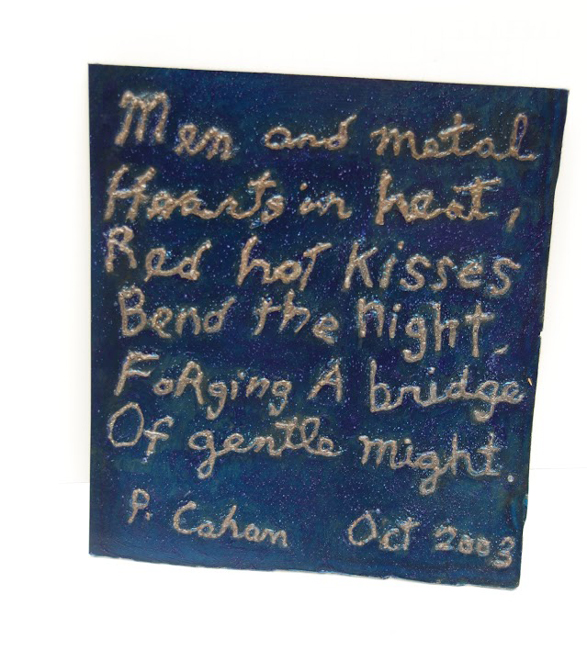 Men and metal
Hearts in heat,
Red hot Kisses
Bend the Night.
FoRging A bridge
Of gentle might.
P. Cahan Oct 2003